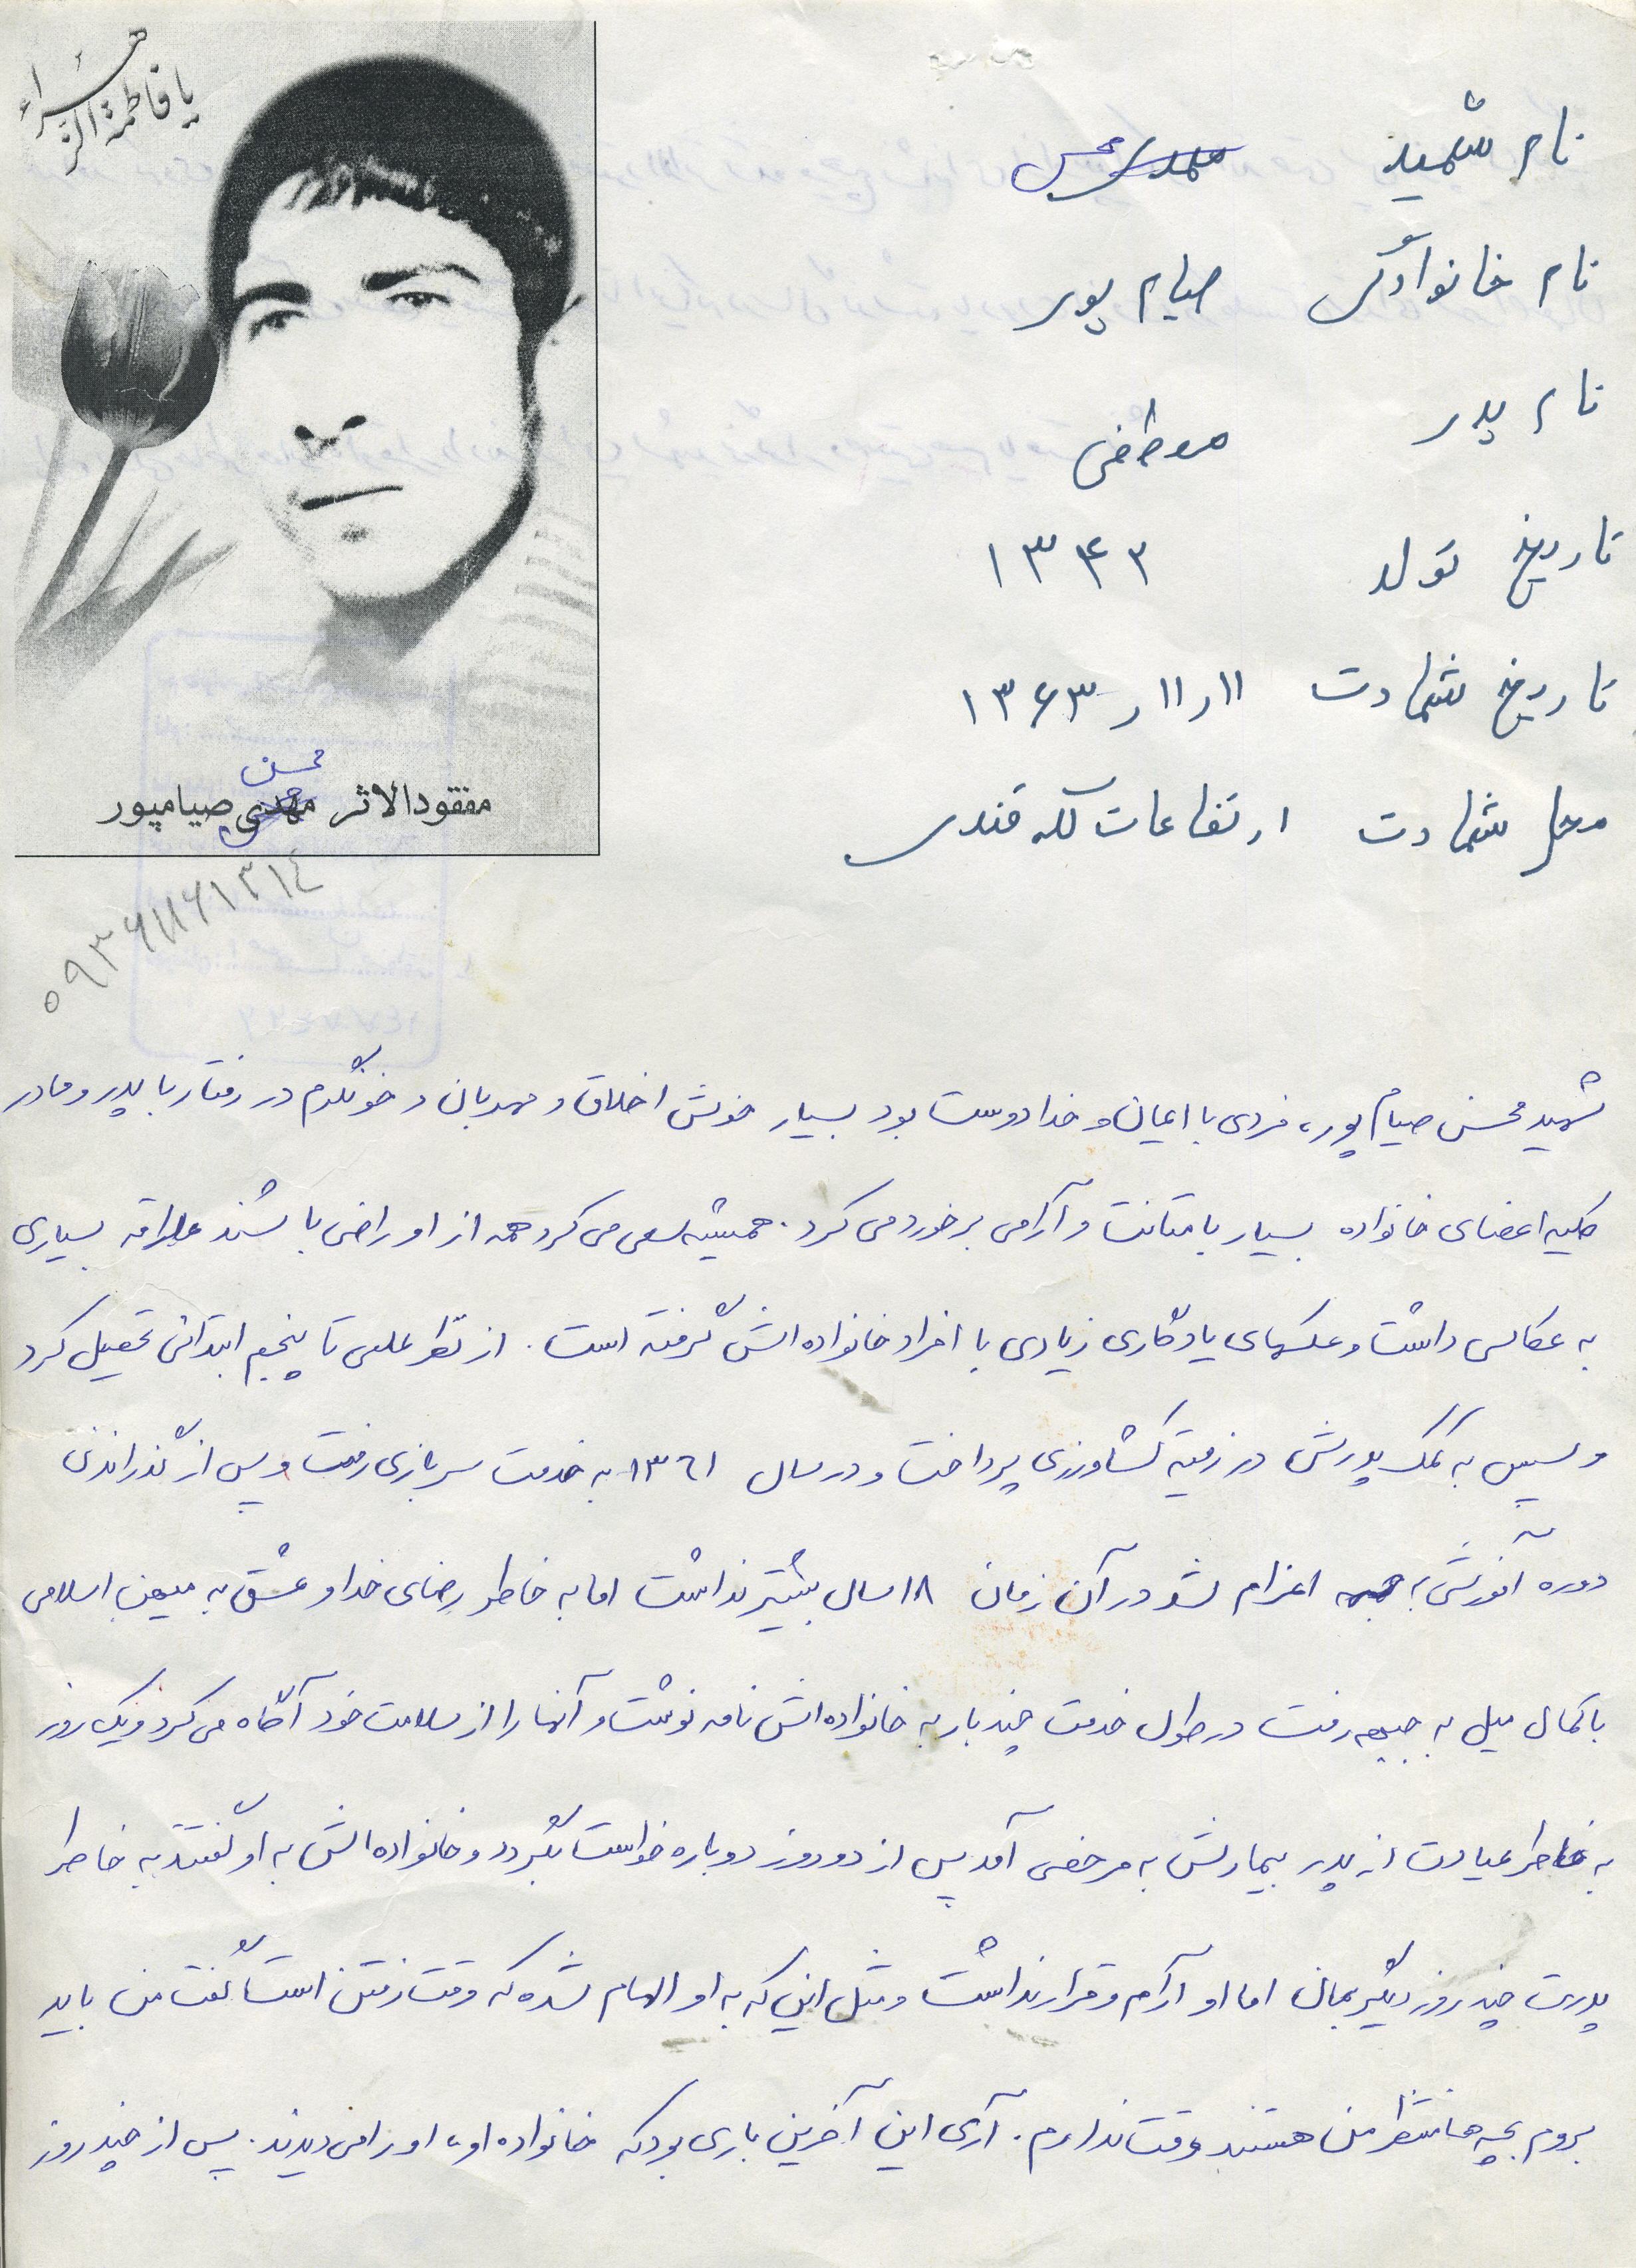 یا فاطمة الزهراء
نام شهید محسن
نام خانوادگی صیام پور
نام پدر مصطفی
تاریخ تولد ۱۳۴۳
تاریخ شهادت ۱۱ر۱۱ر۱۳۶۳
محل شهادت ارتفاعات کله قندی
محسن
مفقودالاثر مهدی صیامپور
۰۹۳۶۱۱۶۱۳۱٤
شهید محسن صیام پور، فردی با ایمان و خدا دوست بود بسیار خوش اخلاق و مهربان و خونگرم در رفتار با پدر و مادر
کلیه اعضای خانواده بسیار با متانت و آرامی برخورد می کرد. همیشه سعی می کرد همه از او راضی باشند علاقه بسیاری
به عکاسی داشت و عکسهای یادگاری زیادی با افراد خانواده اش گرفته است. از نظر علمی تا پنجم ابتدائی تحصیل کرد
و سپس به کمک پدرش در زمینه کشاورزی پرداخت و در سال ۱۳٦۱ به خدمت سربازی رفت و پس از گذراندن
دوره آموزشی به جبهه اعزام شد در آن زمان ۱۸ سال بیشتر نداشت اما به خاطر رضای خدا و عشق به میهن اسلامی
با کمال میل به جبهه رفت در طول خدمت چند بار به خانواده اش نامه نوشت و آنها را از سلامت خود آگاه می کرد و یک روز
به خاطر عیادت از پدر بیمارش به مرخصی آمد پس از دو روز دوباره خواست بگردد و خانواده اش به او گفتند به خاطر
پدرت چند روز دیگر بمان اما او آرام و قرار نداشت و مثل این که به او الهام شده که وقت رفتن است گفت من باید
بروم بچه ها منتظر من هستند وقت ندارم. آری این آخرین باری بود که خانواده او، او را می دیدند. پس از چند روز